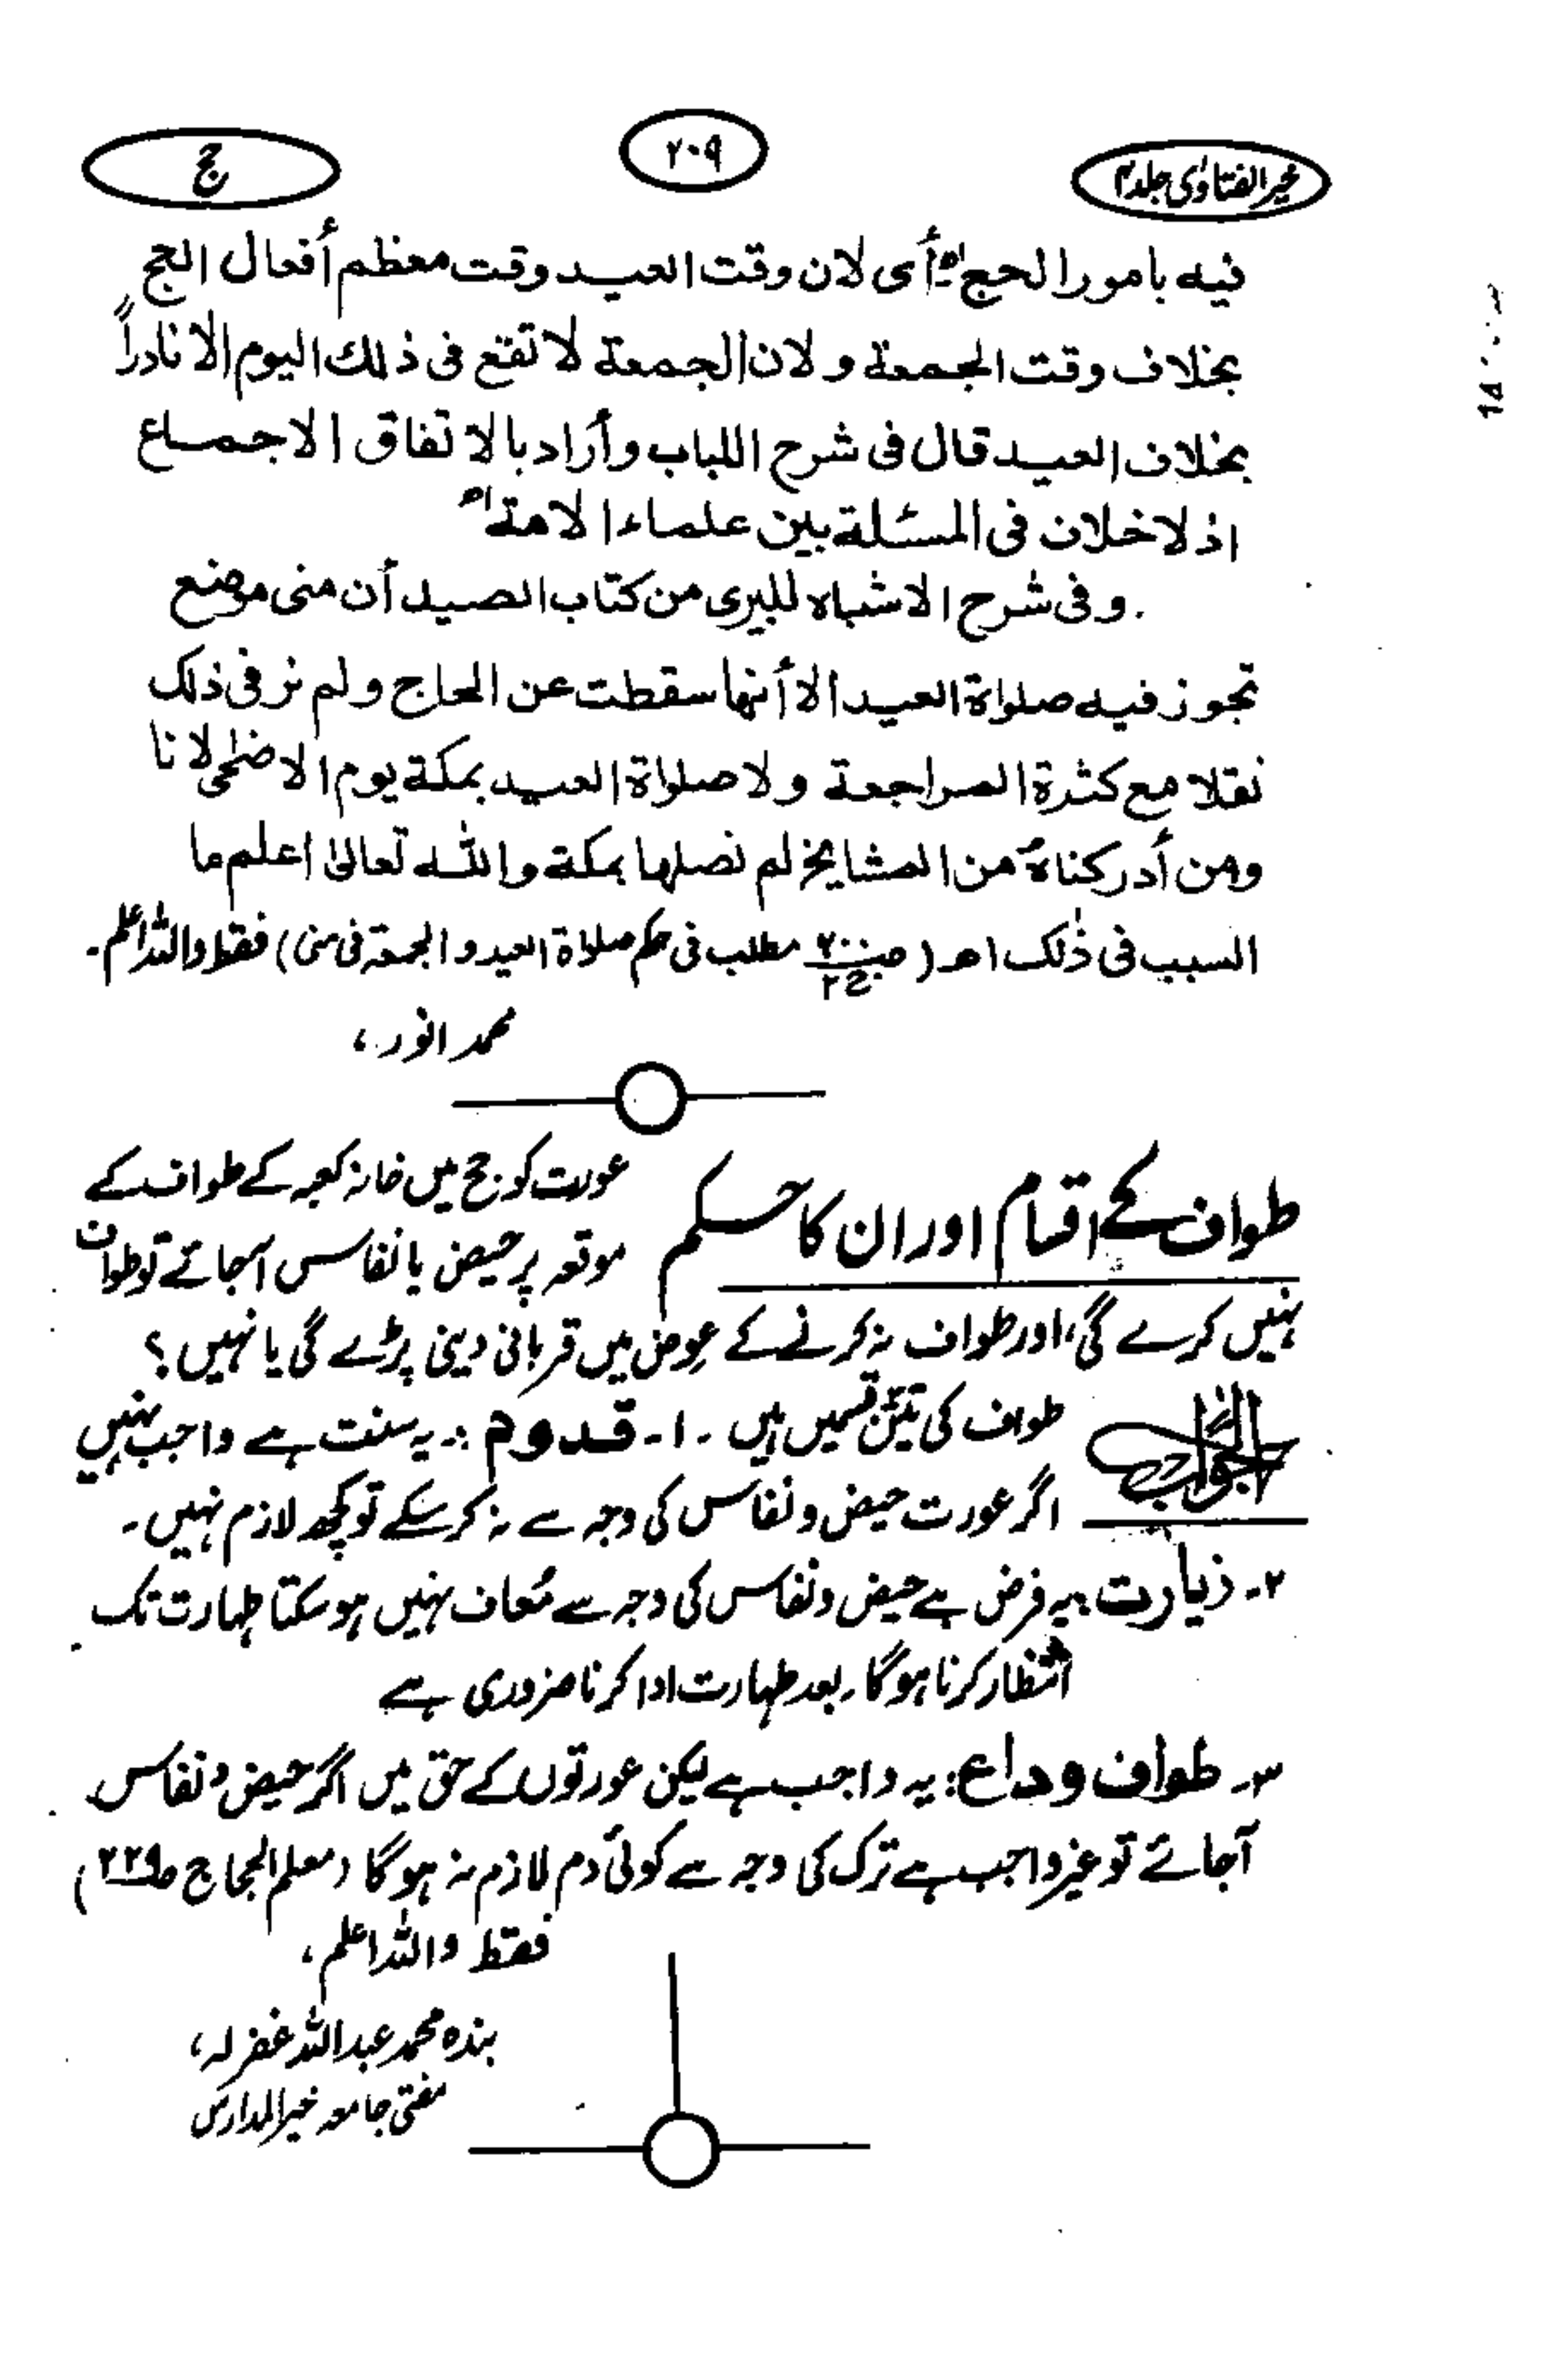 خیر الفتاوٰی جلد ۴
۲۰۹
حج
فیه بامور الحج اھ أی لان وقت العید وقت معظم أفعال الحج
بخلاف وقت الجمعة و لان الجمعة لا تقع فی ذلك الیوم الا نادراً
بخلاف العید قال فی شرح اللباب وأراد بالاتفاق الاجماع
اذ لا خلاف فی المسئلة بین علماء الامة اھ
وفی شرح الاشباه للبیری من کتاب الصید أن منی موضع
تجوز فیه صلوٰة العید الا أنها سقطت عن الحاج ولم نر فی ذلک
نقلا مع کثرة المراجعة ولا صلوٰة العید بمکة یوم الاضحٰی لانا
ومن أدرکناہ من المشایخ لم نصلها بمکة والله تعالیٰ اعلم ما
السبب فی ذٰلک اھ ( مطلب فی حکم صلوٰة العید و الجمعة فی منی) فقط واللہ اعلم۔
محمد انور،
طواف کے اقسام اور ان کا حکم
عورت کو حج میں خانہ کعبہ کے طواف کے
موقعہ پر حیض یا نفاس آجائے تو طواف
نہیں کرے گی، اور طواف نہ کرنے کے عوض میں قربانی دینی پڑے گی یا نہیں ؟
الجواب
طواف کی تین قسمیں ہیں ۔ ۱۔ قدوم :۔ یہ سنت ہے واجب نہیں
اگر عورت حیض و نفاس کی وجہ سے نہ کر سکے تو کچھ لازم نہیں۔
۲۔ زیارت : یہ فرض ہے حیض و نفاس کی وجہ سے مُعاف نہیں ہو سکتا طہارت تک
انتظار کرنا ہوگا۔ بعد طہارت ادا کرنا ضروری ہے
۳۔ طواف وداع : یہ واجب ہے لیکن عورتوں کے حق میں اگر حیض و نفاس
آجائے تو غیر واجب ہے ترک کی وجہ سے کوئی دم لازم نہ ہوگا (معلم الحجاج)
فقط واللہ اعلم،
بندہ محمد عبداللہ غفرلہ،
مفتی جامعہ خیر المدارس